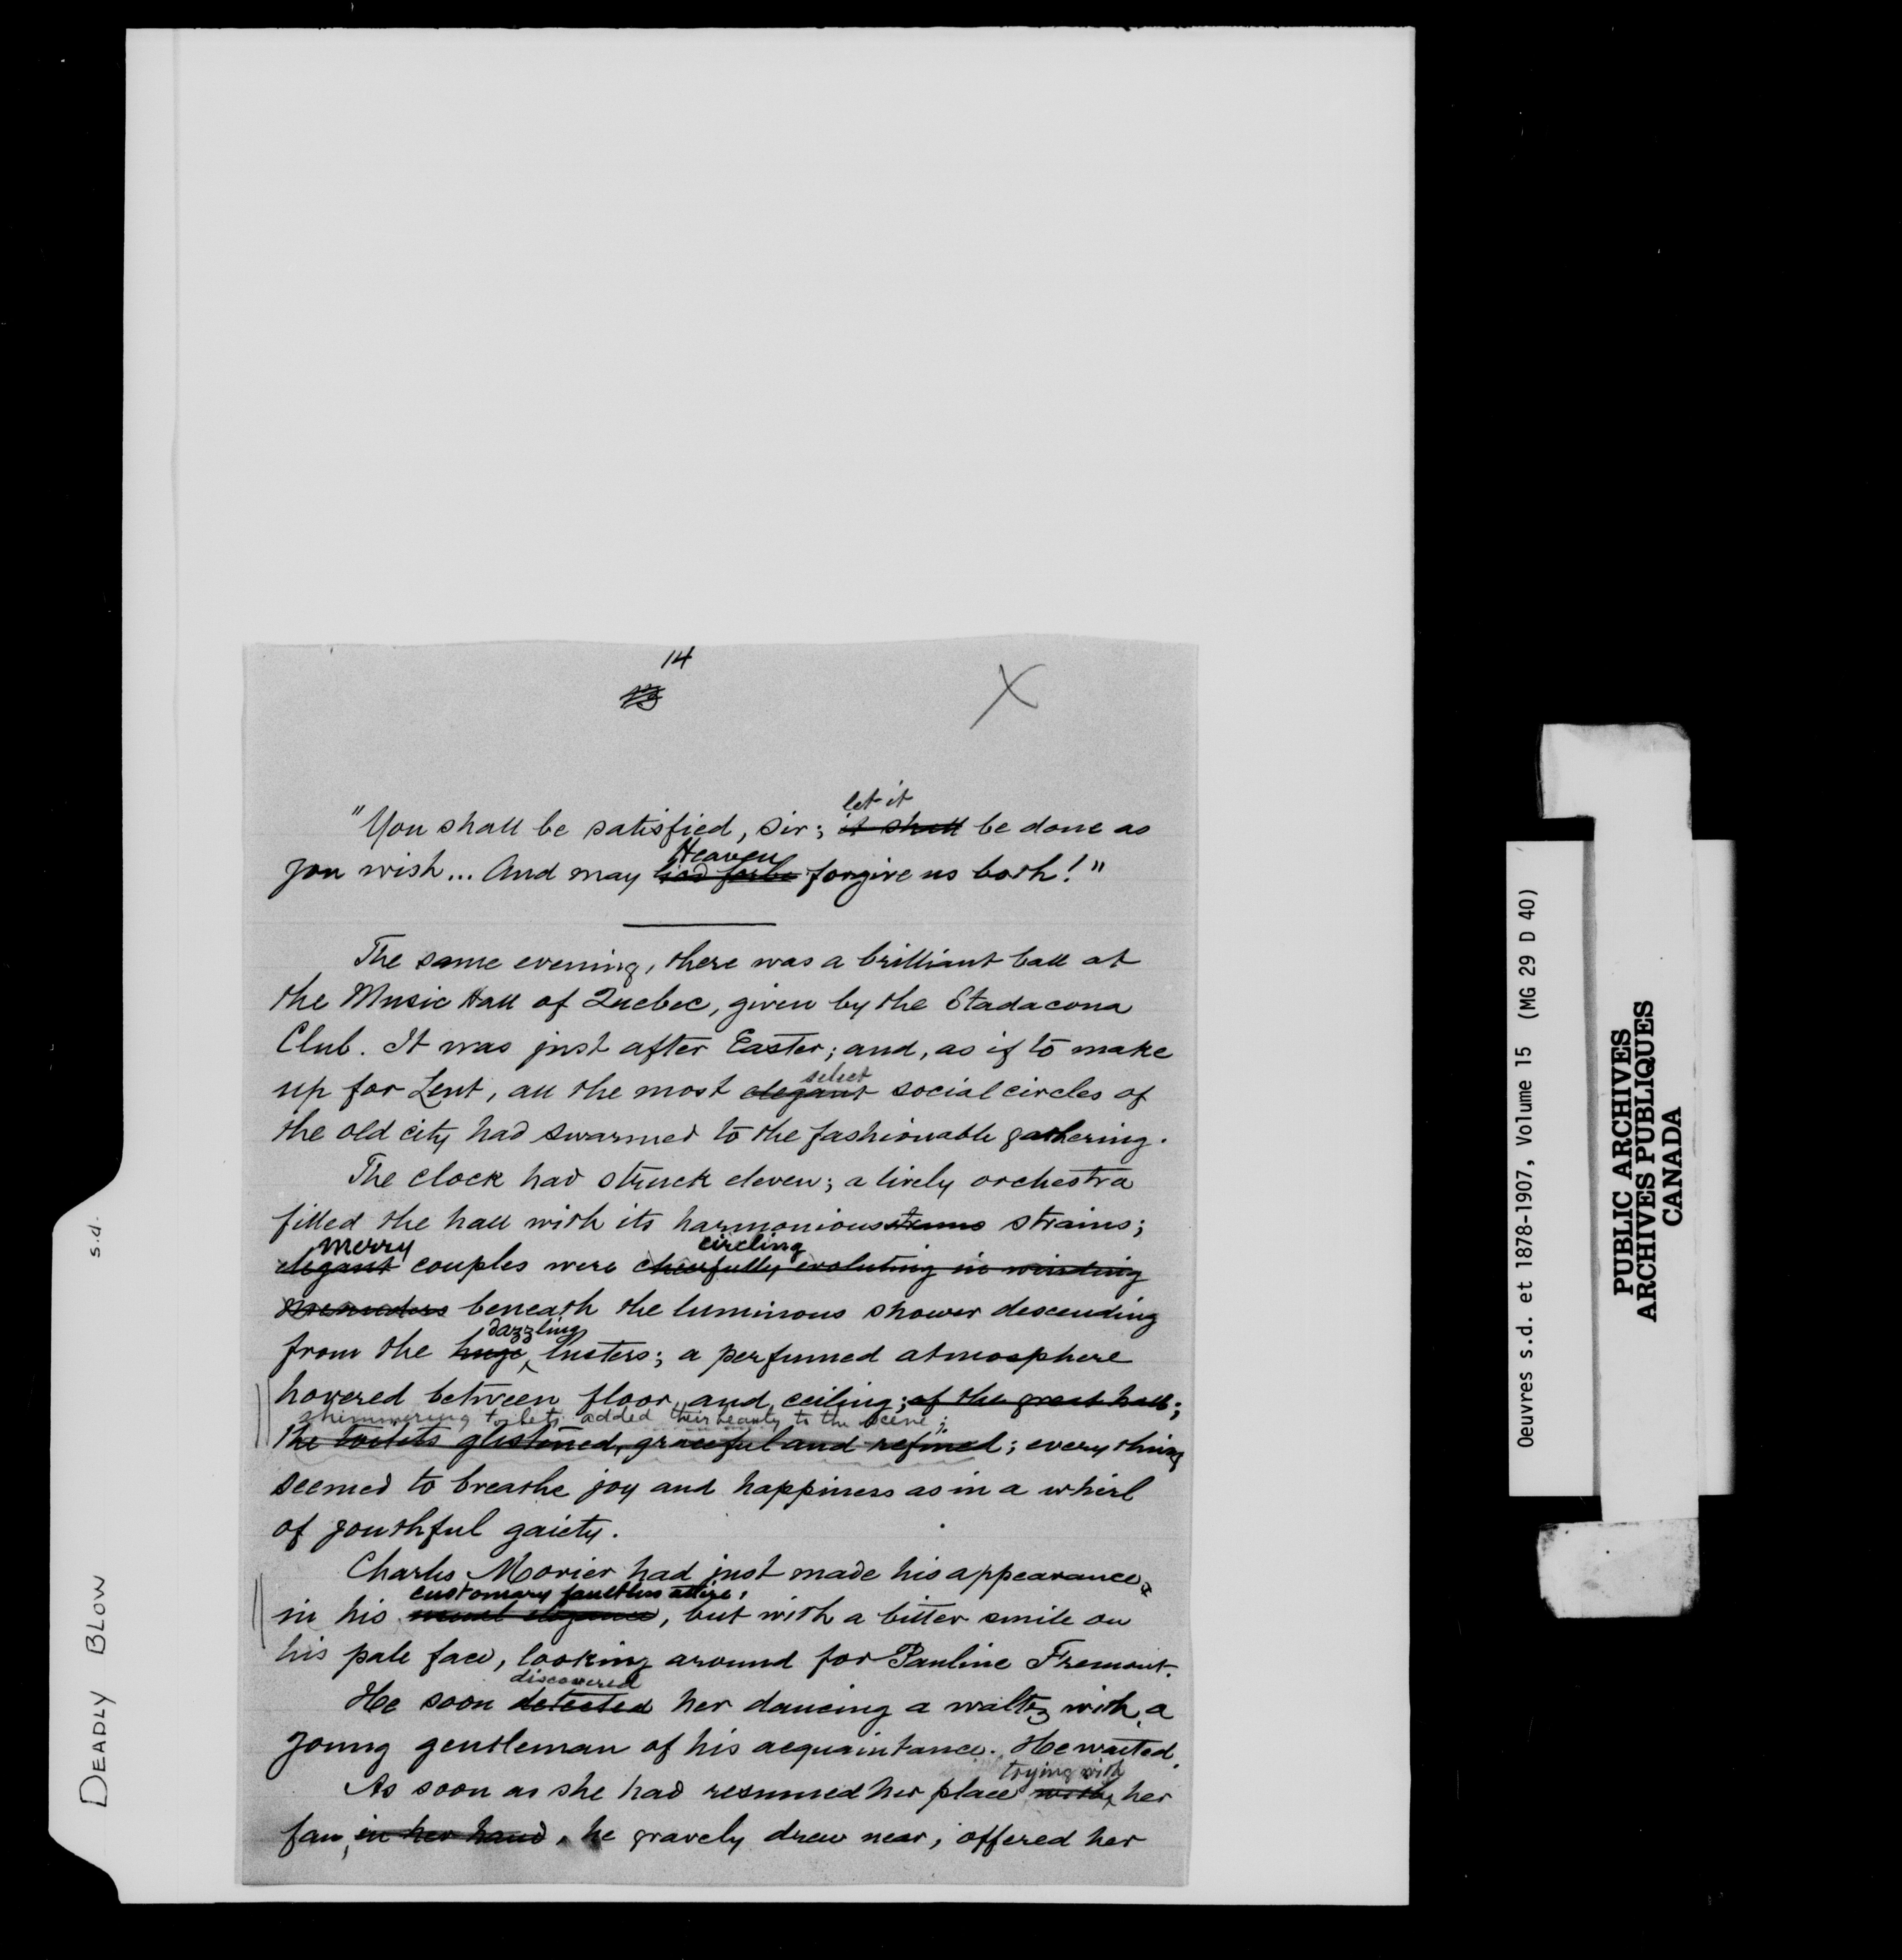 14
13
X
let it
"You shall be satisfied, sir; it shall be done as
Heaven
you wish... And may God forgive us both!"
The same evening, there was a brilliant ball at
the Music Hall of Quebec, given by the Stadacona
Club. It was just after Easter; and, as if to make
select
up for Lent, all the most elegant social circles of
the old city had swarmed to the fashionable gathering.
The clock had struck eleven; a lively orchestra
filled the hall with its harmonious strains;
merry circling
elegant couples were cheerfully evoluting in winding
meanders beneath the luminous shower descending
dazzling
from the huge lusters; a perfumed atmosphere
hovered between floor and ceiling; of the great hall;
shimmering toilets added their beauty to the scene;
the toilets glistened, graceful and refined; everything
seemed to breathe joy and happiness as in a whirl
of youthful gaiety.
Charles Morier had just made his appearance
customary faultless attire;
in his usual elegance, but with a bitter smile on
his pale face, looking around for Pauline Fremont.
discovered
He soon detected her dancing a waltz with a
young gentleman of his acquaintance. He waited.
toying with
As soon as she had resumed her place with her
fan, in her hand, he gravely drew near, offered her
DEADLY BLOW s.d.
Oeuvres s.d. et 1878-1907, Volume 15 (MG 29 D 40)
PUBLIC ARCHIVES
ARCHIVES PUBLIQUES
CANADA